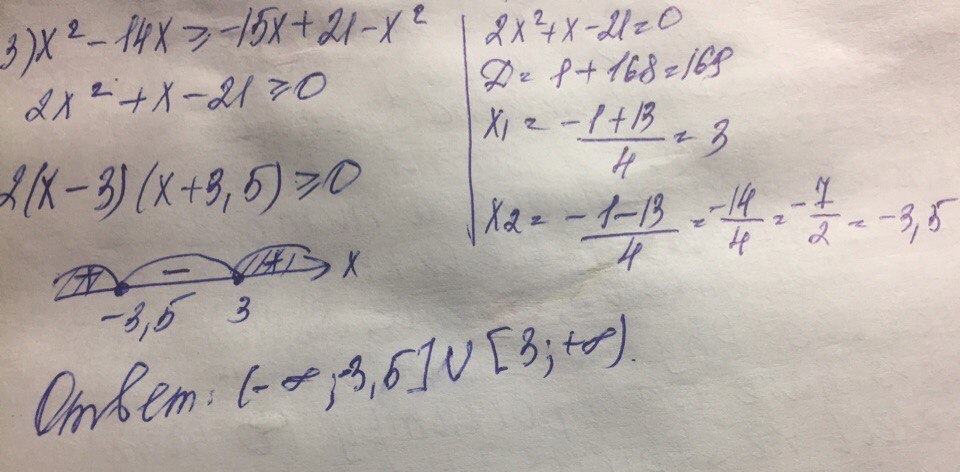 3) x² - 14x ≥ -15x + 21 - x²
2x² + x - 21 ≥ 0
2(x - 3)(x + 3,5) ≥ 0
+ - + x
-3,5 3
2x² + x - 21 = 0
D = 1 + 168 = 169
x₁ = (-1 + 13)/4 = 3
x₂ = (-1 - 13)/4 = -14/4 = -7/2 = -3,5
Ответ: (-∞; -3,5] ∪ [3; +∞).